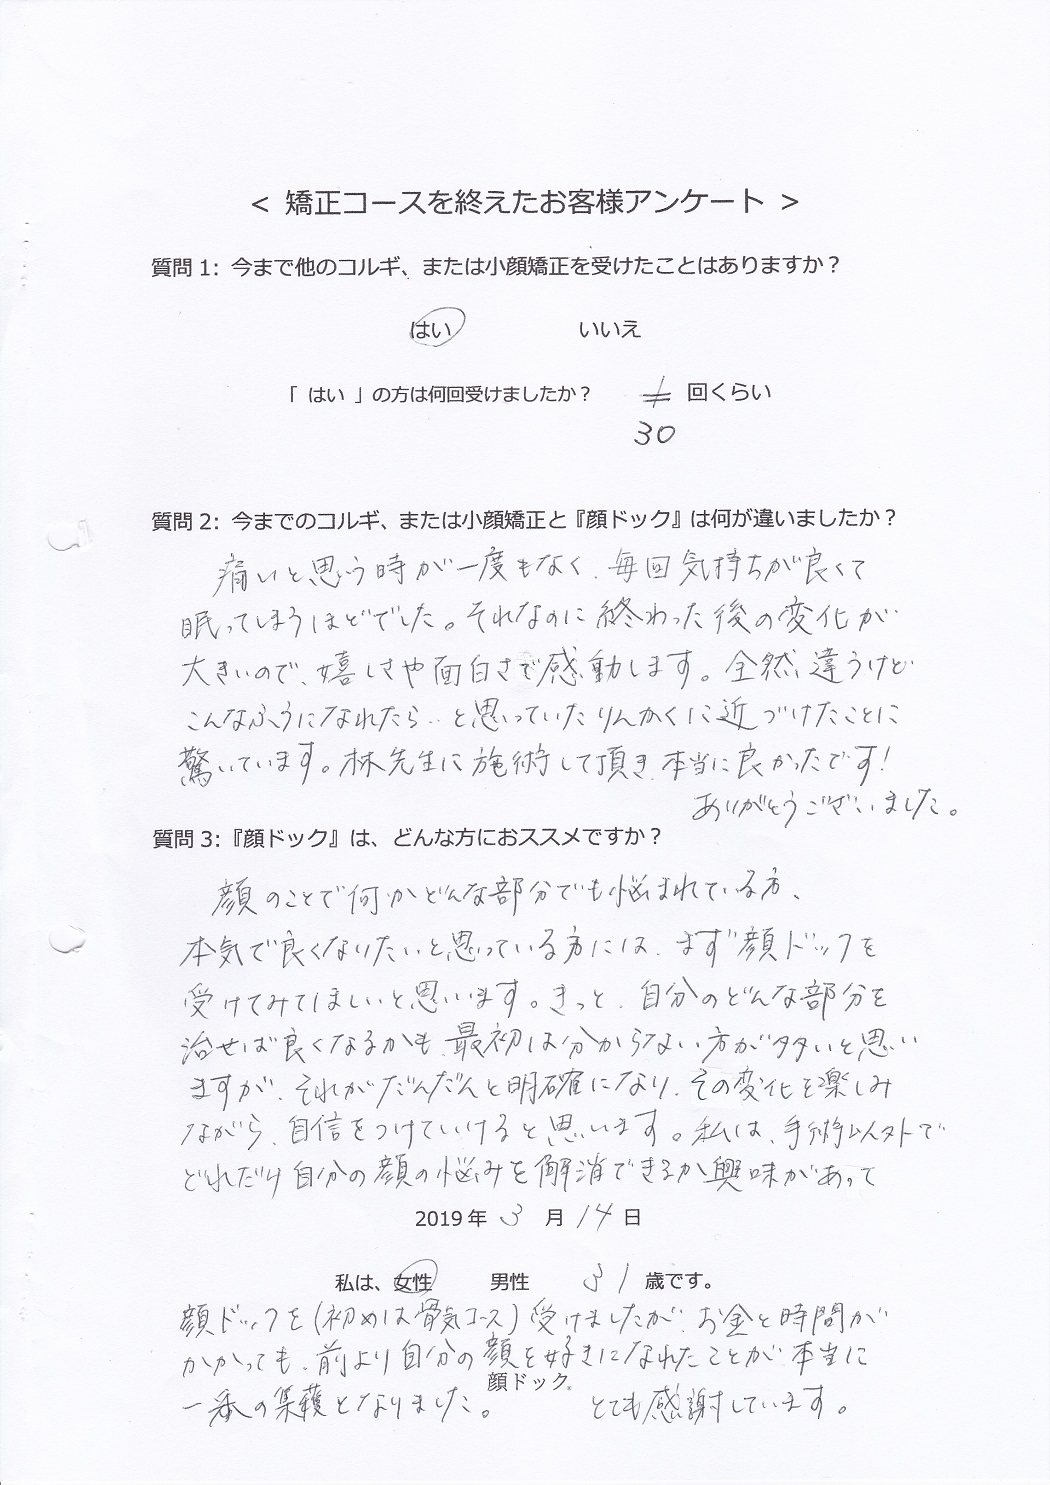 < 矯正コースを終えたお客様アンケート >
質問 1: 今まで他のコルギ、または小顔矯正を受けたことはありますか？
はい いいえ
「 はい 」の方は何回受けましたか？ 回くらい
30
質問 2: 今までのコルギ、または小顔矯正と『顔ドック』は何が違いましたか？
痛いと思う時が一度もなく、毎回気持ちが良くて
眠ってしまうほどでした。それなのに終わった後の変化が
大きいので、嬉しさや面白さで感動します。全然違うけど
こんなふうになれたら‥と思っていたりんかくに近づけたことに
驚いています。林先生に施術して頂き、本当に良かったです！
ありがとうございました。
質問 3:『顔ドック』は、どんな方におススメですか？
顔のことで何かどんな部分でも悩まれている方、
本気で良くなりたいと思っている方には、まず顔ドックを
受けてみてほしいと思います。きっと、自分のどんな部分を
治せば良くなるかも、最初は分からない方が多いと思い
ますが、それがだんだんと明確になり、その変化を楽しみ
ながら、自信をつけていけると思います。私は、手術以外で
どれだけ自分の顔の悩みを解消できるか興味があって
2019 年 3 月 14 日
私は、女性 男性 31 歳です。
顔ドックを(初めは骨気コース)受けましたが、お金と時間が
かかっても、前より自分の顔を好きになれたことが本当に
顔ドック
一番の集穫となりました。 とても感謝しています。